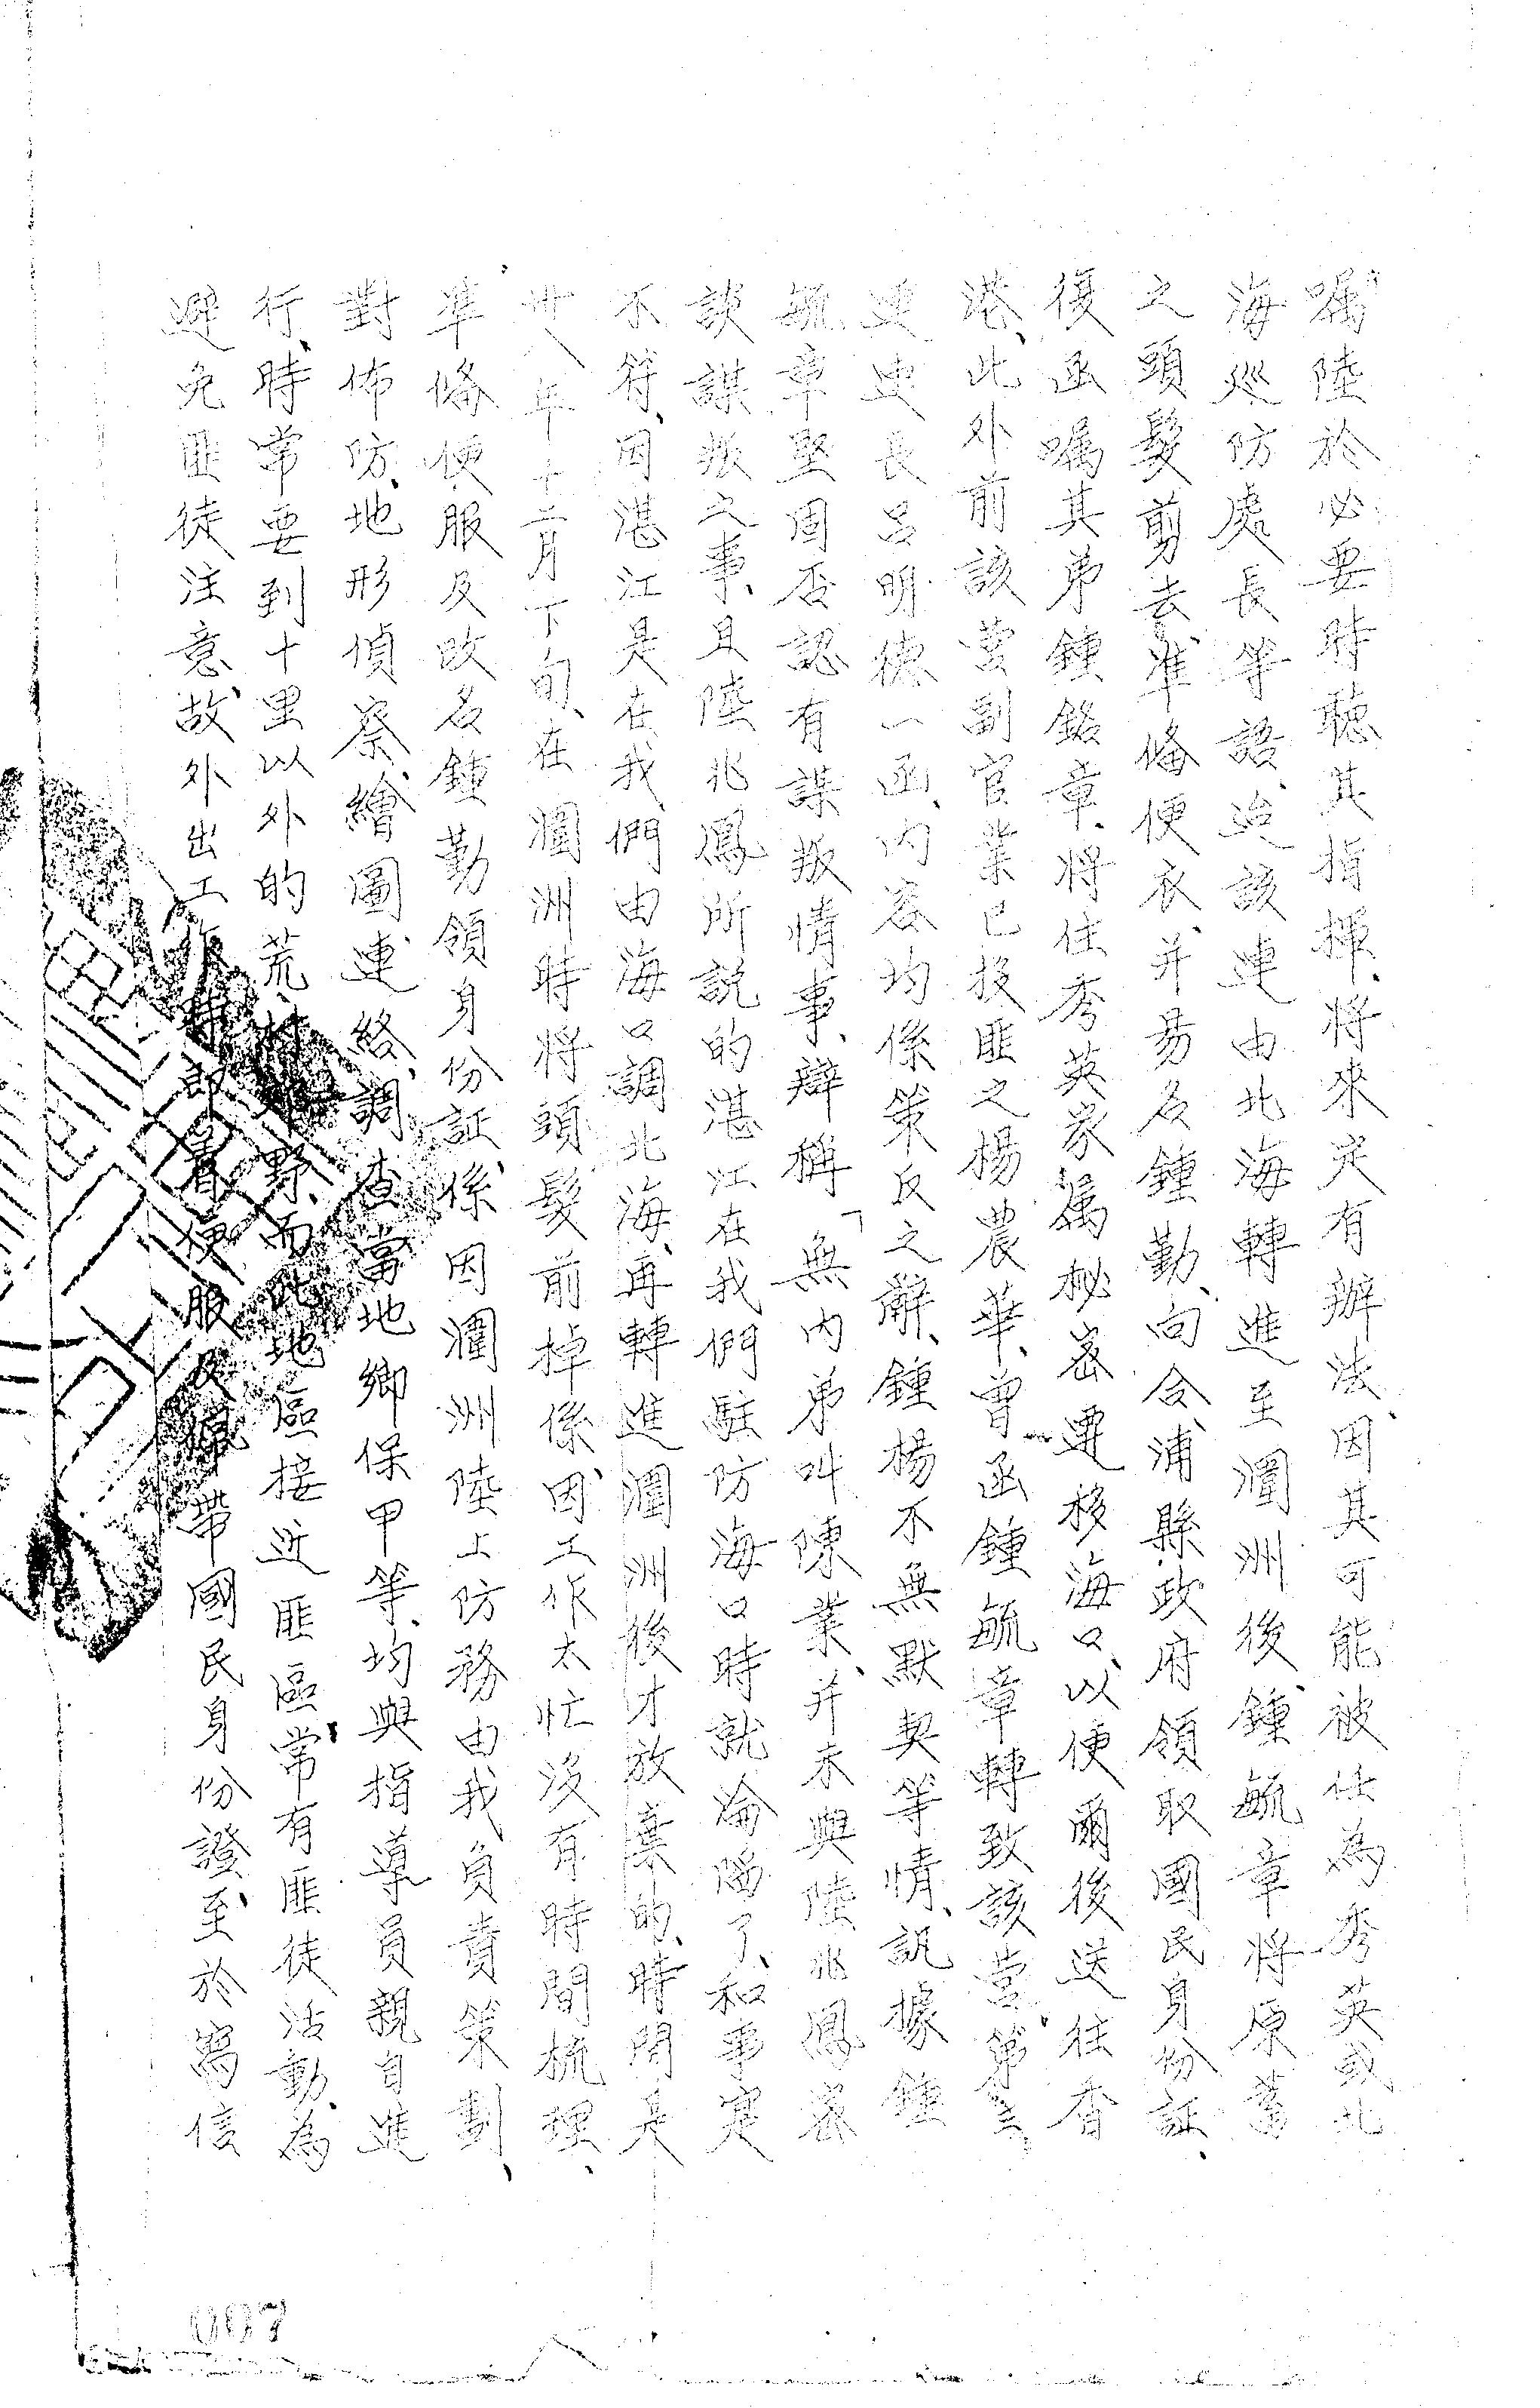 嘱陸於必要時聽其指揮、將來定有辦法、因其可能被仕為秀英或北
海巡防處長等語、迨該連由北海轉進至潿洲後、鍾毓章將原蓄
之頭髮剪去、準俻便衣、并易名鍾勤、向合浦縣政府領取國民身份証、
復函嘱其弟鍾銘章、將住秀英家属秘密遷移海口、以便爾後送往香
港、此外前該營副官業已投匪之楊農華、曾函鍾毓章轉致該營、第三
連連長呂明德一函、內容均係策反之辭、鍾楊不無默契等情、訊據鍾
毓章堅固否認有謀叛情事、辯稱「無內弟叫陳業、并未與陸兆鳳密
談謀叛之事、且陸兆鳳所説的湛江在我們駐防海口時就淪陷了、和事寔
不符、因湛江是在我們由海口調北海、再轉進潿洲後才放棄的、時間是
卅八年十二月下旬、在潿洲時將頭髮前掉係因工作太忙沒有時間梳理、
準俻便服及改名鍾勤領身份証、係因潿洲陸上防務由我負責策劃、
對佈防、地形偵察、繪圖連絡、調查當地鄉保甲等、均與指導員親自進
行、時常要到十里以外的荒村郊野、而此地區接近匪區、常有匪徒活動、為
避免匪徒注意、故外出工作時即着便服及攜帶國民身份證、至於寫信
007